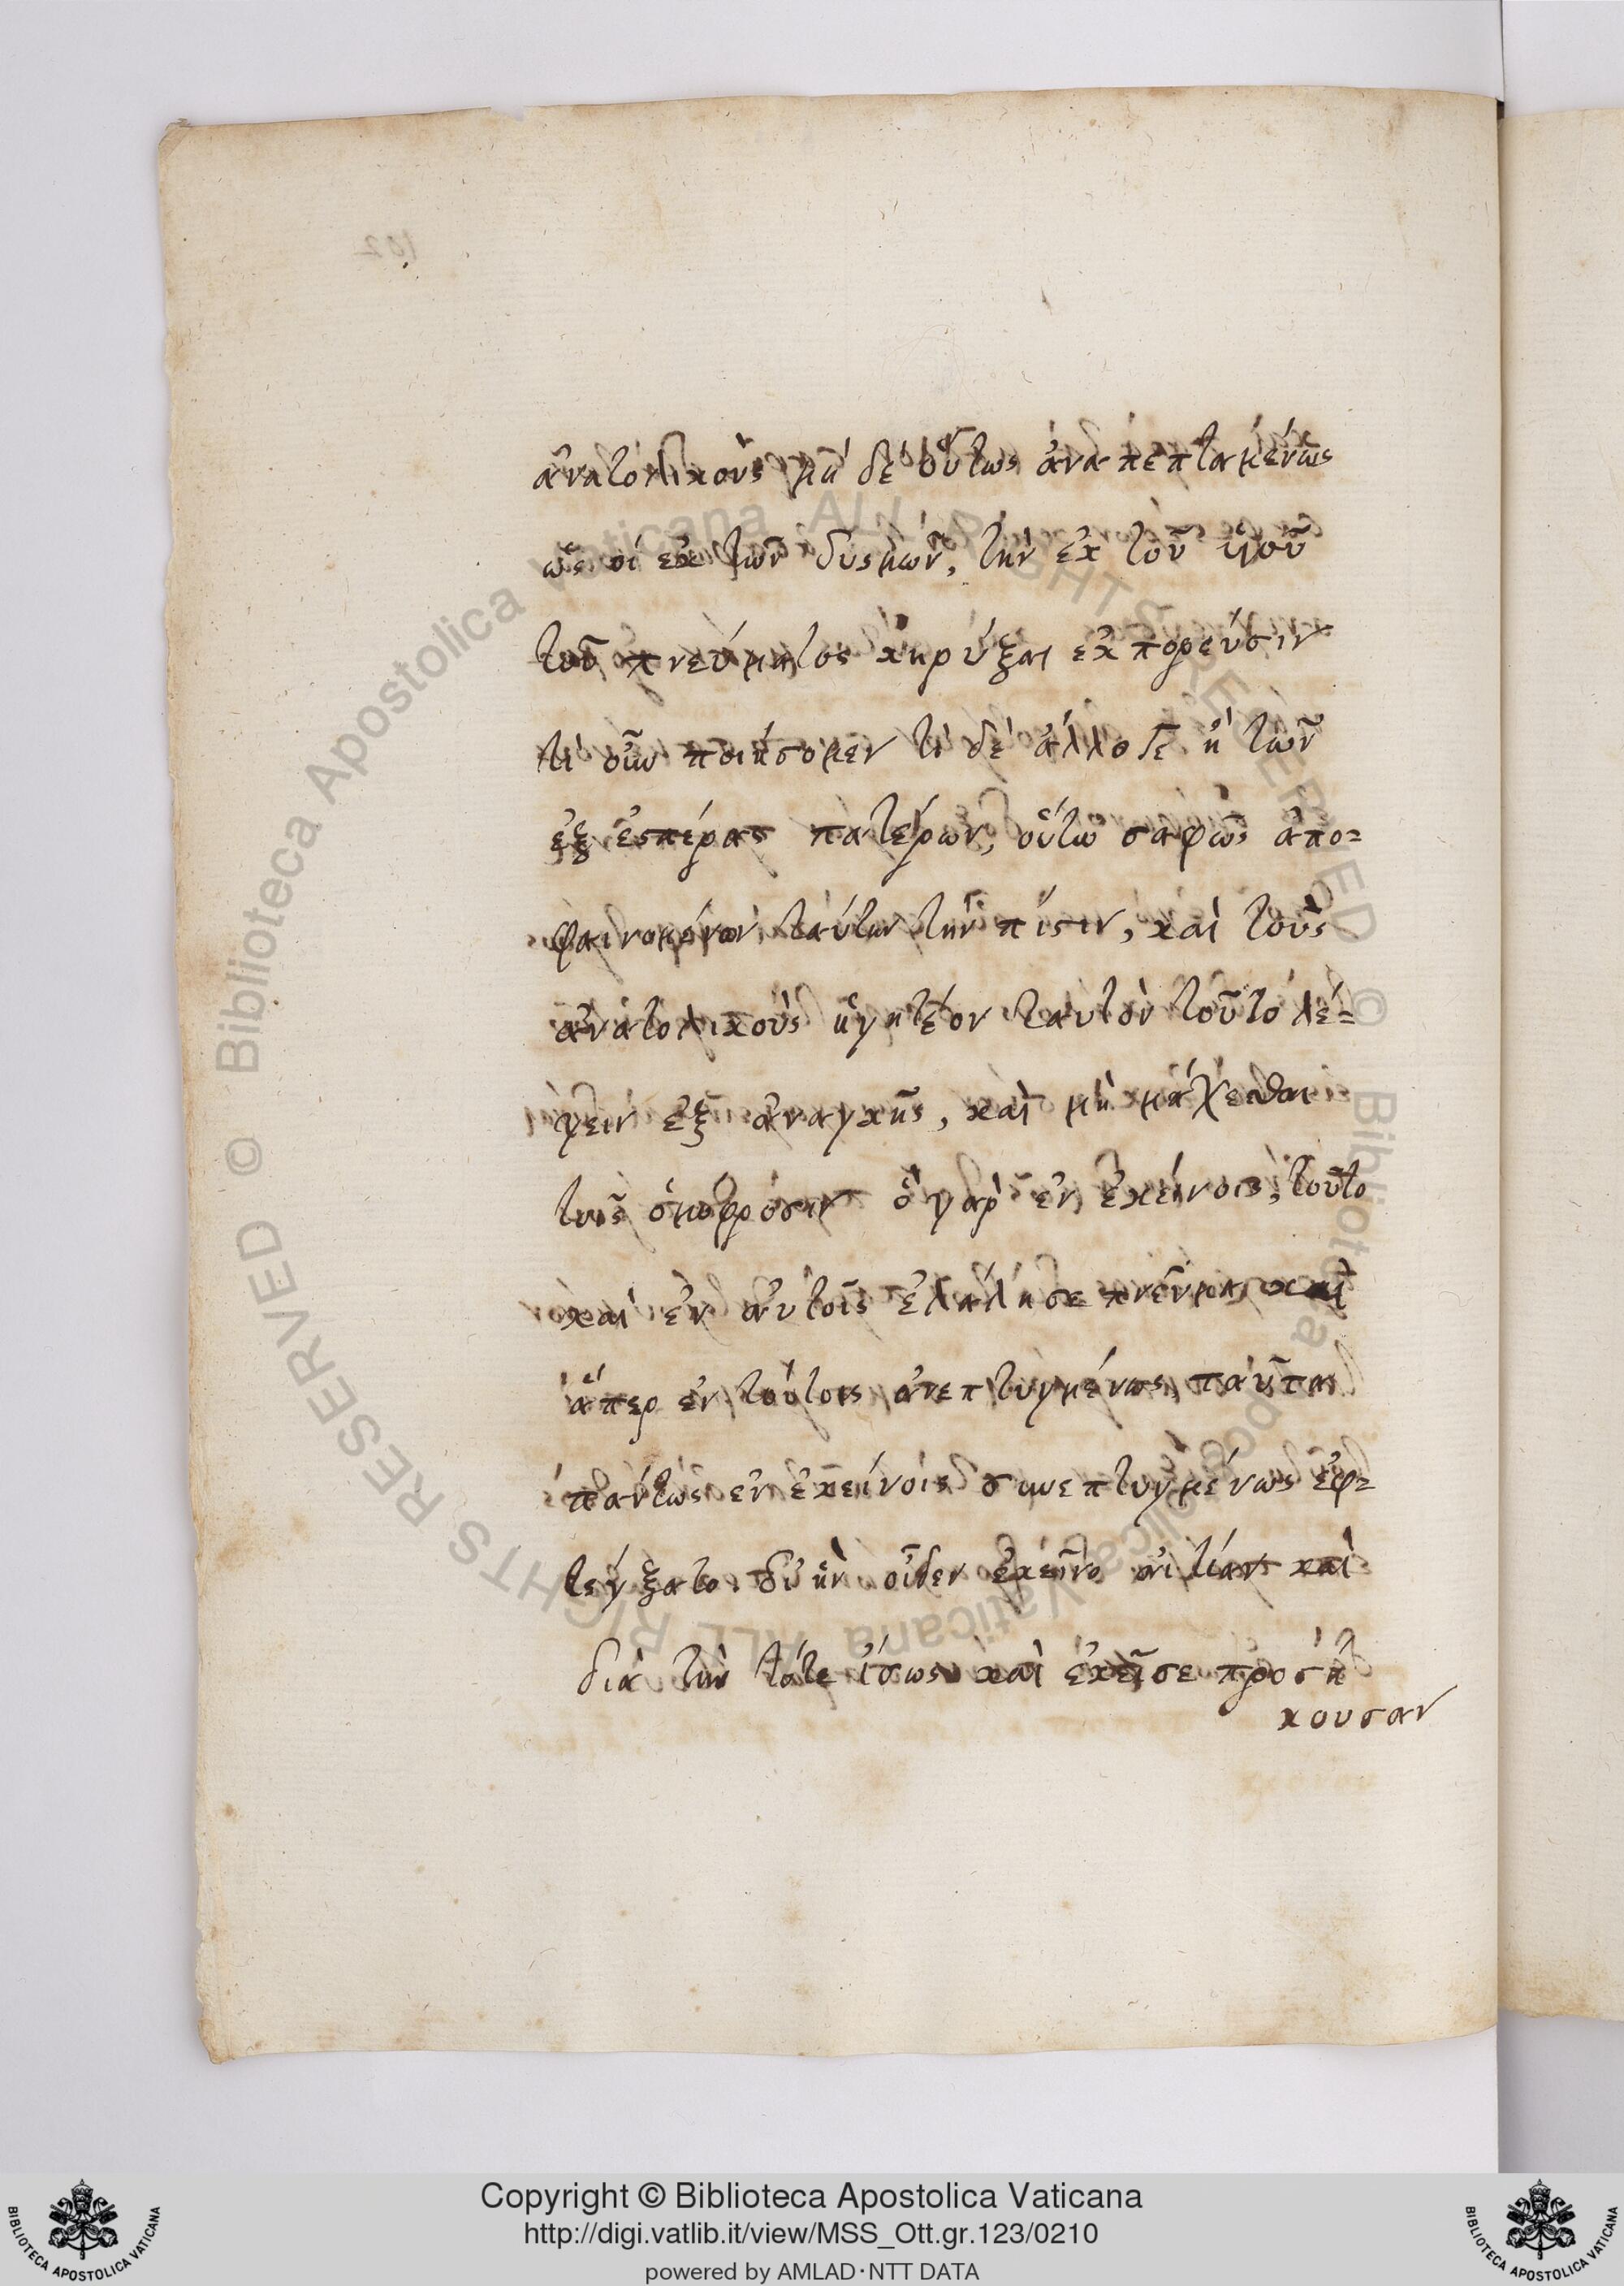 ἀνατολικοὺς μὴ δὲ οὕτως ἀναπεπταμένως
ὡς οἱ ἐκ τῶν δυσμῶν, τὴν ἐκ τοῦ υἱοῦ
τοῦ πνεύματος κηρύξαι ἐκπορεύσιν
τί οὖν ποιήσομεν τί δὲ ἄλλο γε ἢ τῶν
ἐξ ἑσπέρας πατέρων, οὕτω σαφῶς ἀπο-
φαινομένων ταύτην τὴν πίστιν, καὶ τοὺς
ἀνατολικοὺς ἡγητέον ταυτὸν τοῦτο λέ-
γειν ἐξ ἀναγκῆς, καὶ μὴ μάχεσθαι
τοῖς ὁμόφροσιν ὃ γὰρ ἐν ἐκείνοις, τοῦτο
καὶ ἐν αὐτοῖς ἐλάλησε πνεῦμα, καὶ
ἅπερ ἐν τούτοις ἀνεπτυγμένως, ταῦτα
πάντως ἐν ἐκείνοις συνεπτυγμένως ἐφ-
θέγξατο. δι' ἣν οἶδεν ἐκεῖνο αἰτίαν καὶ
διὰ τὴν τότε ἴσως καὶ ἐκεῖσε προσή
κουσαν
102
Copyright © Biblioteca Apostolica Vaticana
http://digi.vatlib.it/view/MSS_Ott.gr.123/0210
powered by AMLAD·NTT DATA
BIBLIOTECA APOSTOLICA VATICANA
BIBLIOTECA APOSTOLICA VATICANA
© Biblioteca Apostolica Vaticana ALL RIGHTS RESERVED
© Biblioteca Apostolica Vaticana ALL RIGHTS RESERVED